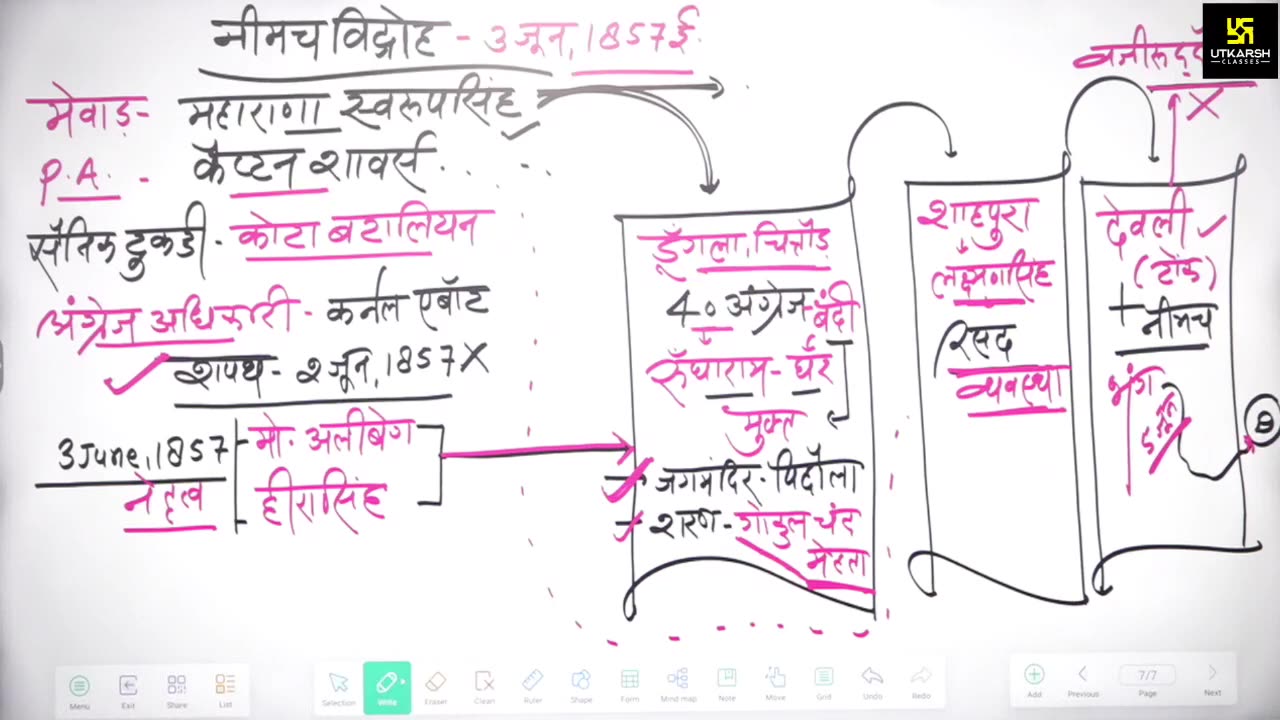 नीमच विद्रोह - 3 जून, 1857 ई.
मेवाड़ - महाराणा स्वरूपसिंह
P.A. - कैप्टन शावर्स
सैनिक टुकडी - कोटा बटालियन
अंग्रेज अधिकारी - कर्नल एबॉट
शपथ - 2 जून, 1857 X
3 June, 1857
नेतृत्व
मो. अलीबेग
हीरासिंह
डूँगला, चित्तौड़
40 अंग्रेज - बंदी
रुँघाराम - घर
मुक्त
जगमंदिर - पिछौला
शरण - गोकुल चंद
मेहता
शाहपुरा
लक्ष्मणसिंह
रसद
व्यवस्था
X
देवली
(टोंक)
+ नीमच
भंग
B
UTKARSH
CLASSES
Menu
Exit
Share
List
Selection
Write
Eraser
Clean
Ruler
Shape
Form
Mind map
Note
Move
Grid
Undo
Redo
Add
Previous
7/7
Page
Next